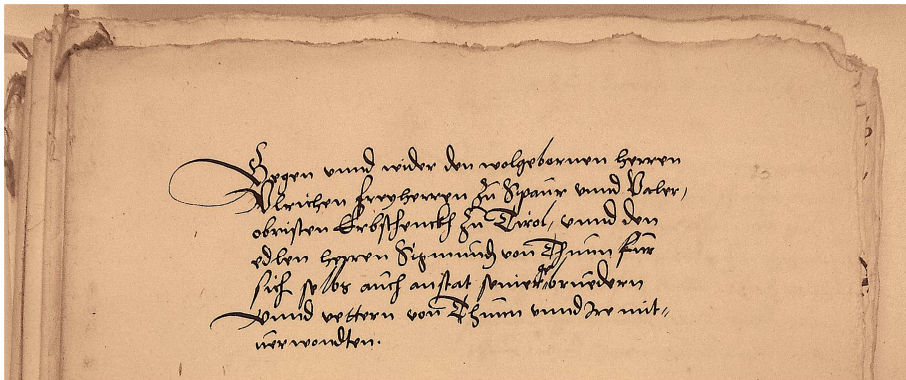 Gegen vnnd wider den wolgebornen herren
Vlrichen freyherren zu Spaur vnnd Valer,
obristen Erbschenckh zu Tirol, vnnd den
edlen herren Sigmund von Thunn für
sich selbs auch anstat seiner gebruedern
vnnd vettern von Thunn vnnd Ire mit-
uerwondten.